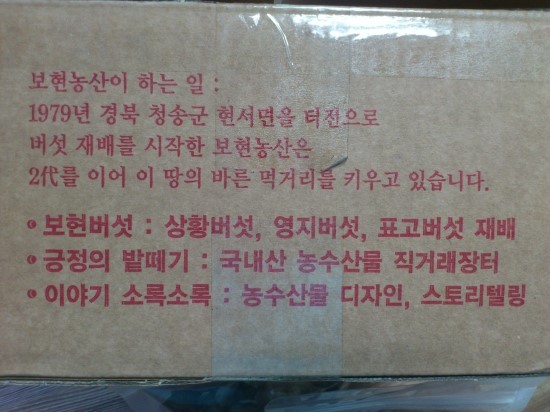 보현농산이 하는 일 :
1979년 경북 청송군 현서면을 터전으로
버섯 재배를 시작한 보현농산은
2代를 이어 이 땅의 바른 먹거리를 키우고 있습니다.
보현버섯 : 상황버섯, 영지버섯, 표고버섯 재배
긍정의 밭떼기 : 국내산 농수산물 직거래장터
이야기 소록소록 : 농수산물 디자인, 스토리텔링